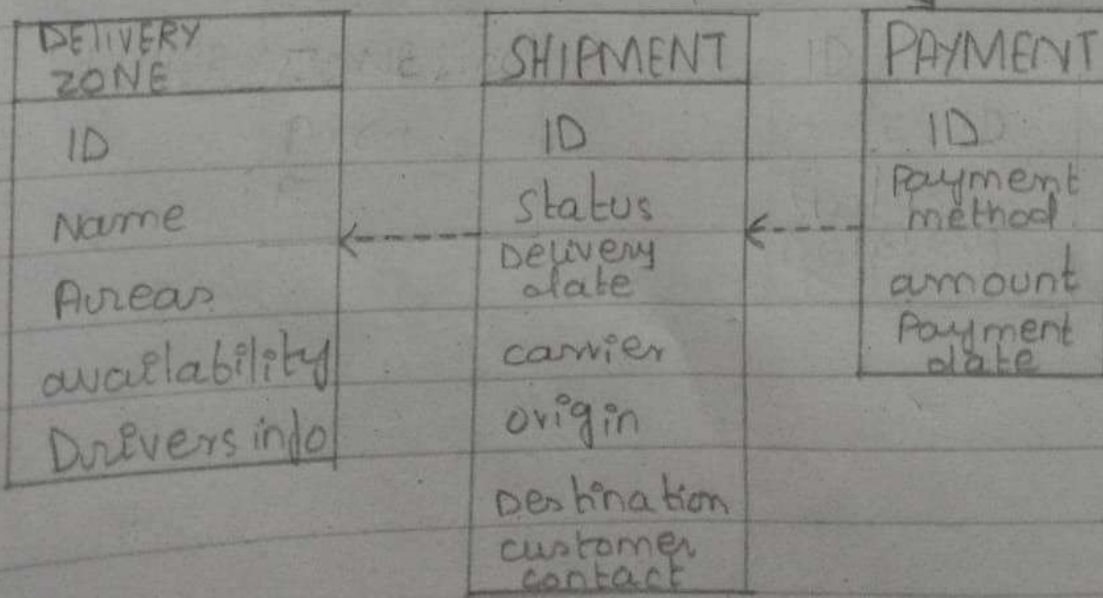 DELIVERY
ZONE
ID
Name
Areas
availability
Drivers info
SHIPMENT
ID
Status
Delivery
date
carrier
origin
Destination
customer
contact
PAYMENT
ID
Payment
method
amount
Payment
date